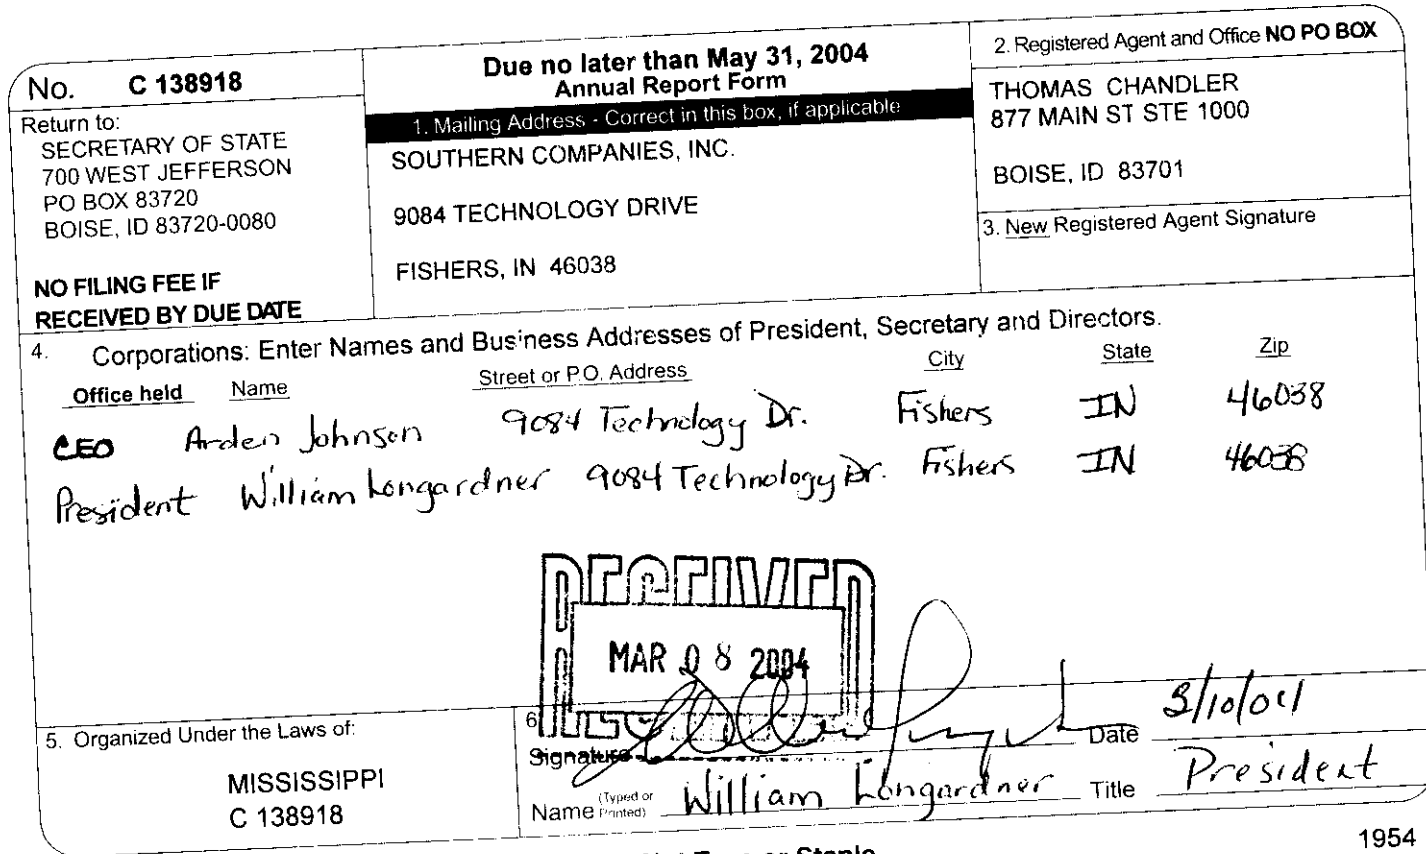 No. C 138918
Return to:
SECRETARY OF STATE
700 WEST JEFFERSON
PO BOX 83720
BOISE, ID 83720-0080
NO FILING FEE IF
RECEIVED BY DUE DATE
Due no later than May 31, 2004
Annual Report Form
1. Mailing Address - Correct in this box, if applicable
SOUTHERN COMPANIES, INC.
9084 TECHNOLOGY DRIVE
FISHERS, IN 46038
2. Registered Agent and Office NO PO BOX
THOMAS CHANDLER
877 MAIN ST STE 1000
BOISE, ID 83701
3. New Registered Agent Signature
4. Corporations: Enter Names and Business Addresses of President, Secretary and Directors.
Office held Name Street or P.O. Address City State Zip
CEO Arden Johnson 9084 Technology Dr. Fishers IN 46038
President William Longardner 9084 Technology Dr. Fishers IN 46038
RECEIVED
MAR 08 2004
5. Organized Under the Laws of:
MISSISSIPPI
C 138918
6.
Signature Date 3/10/04
Name (Typed or Printed) William Longardner Title President
1954